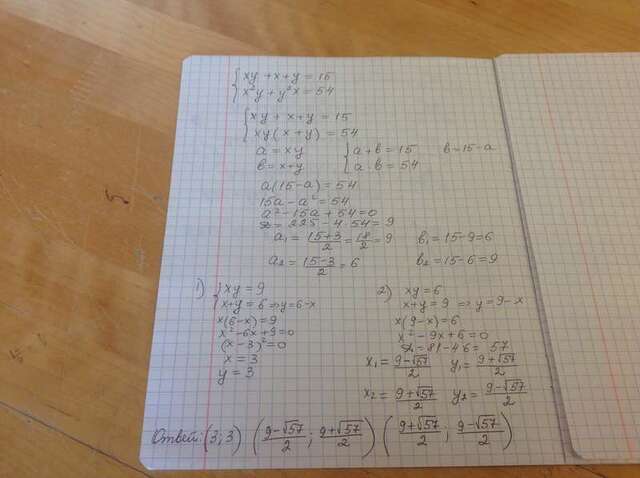 { xy + x + y = 15
x²y + y²x = 54
{ xy + x + y = 15
xy(x + y) = 54
a = xy { a + b = 15 b = 15 - a
b = x + y a · b = 54
a(15 - a) = 54
15a - a² = 54
a² - 15a + 54 = 0
D = 225 - 4 · 54 = 9
a₁ = (15+3)/2 = 18/2 = 9 b₁ = 15 - 9 = 6
a₂ = (15-3)/2 = 6 b₂ = 15 - 6 = 9
1) { xy = 9
x + y = 6 ⇒ y = 6 - x
x(6 - x) = 9
x² - 6x + 9 = 0
(x - 3)² = 0
x = 3
y = 3
2) xy = 6
x + y = 9 ⇒ y = 9 - x
x(9 - x) = 6
x² - 9x + 6 = 0
D = 81 - 4·6 = 57
x₁ = (9-√57)/2 y₁ = (9+√57)/2
x₂ = (9+√57)/2 y₂ = (9-√57)/2
Ответ: (3; 3) ((9-√57)/2 ; (9+√57)/2) ((9+√57)/2 ; (9-√57)/2)